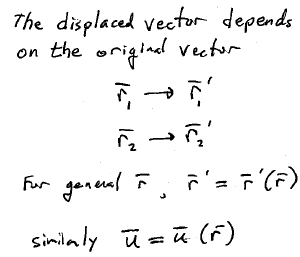 The displaced vector depends
on the original vector
r̄₁ → r̄₁′
r̄₂ → r̄₂′
For general r̄, r̄′ = r̄′(r̄)
similarly ū = ū (r̄)